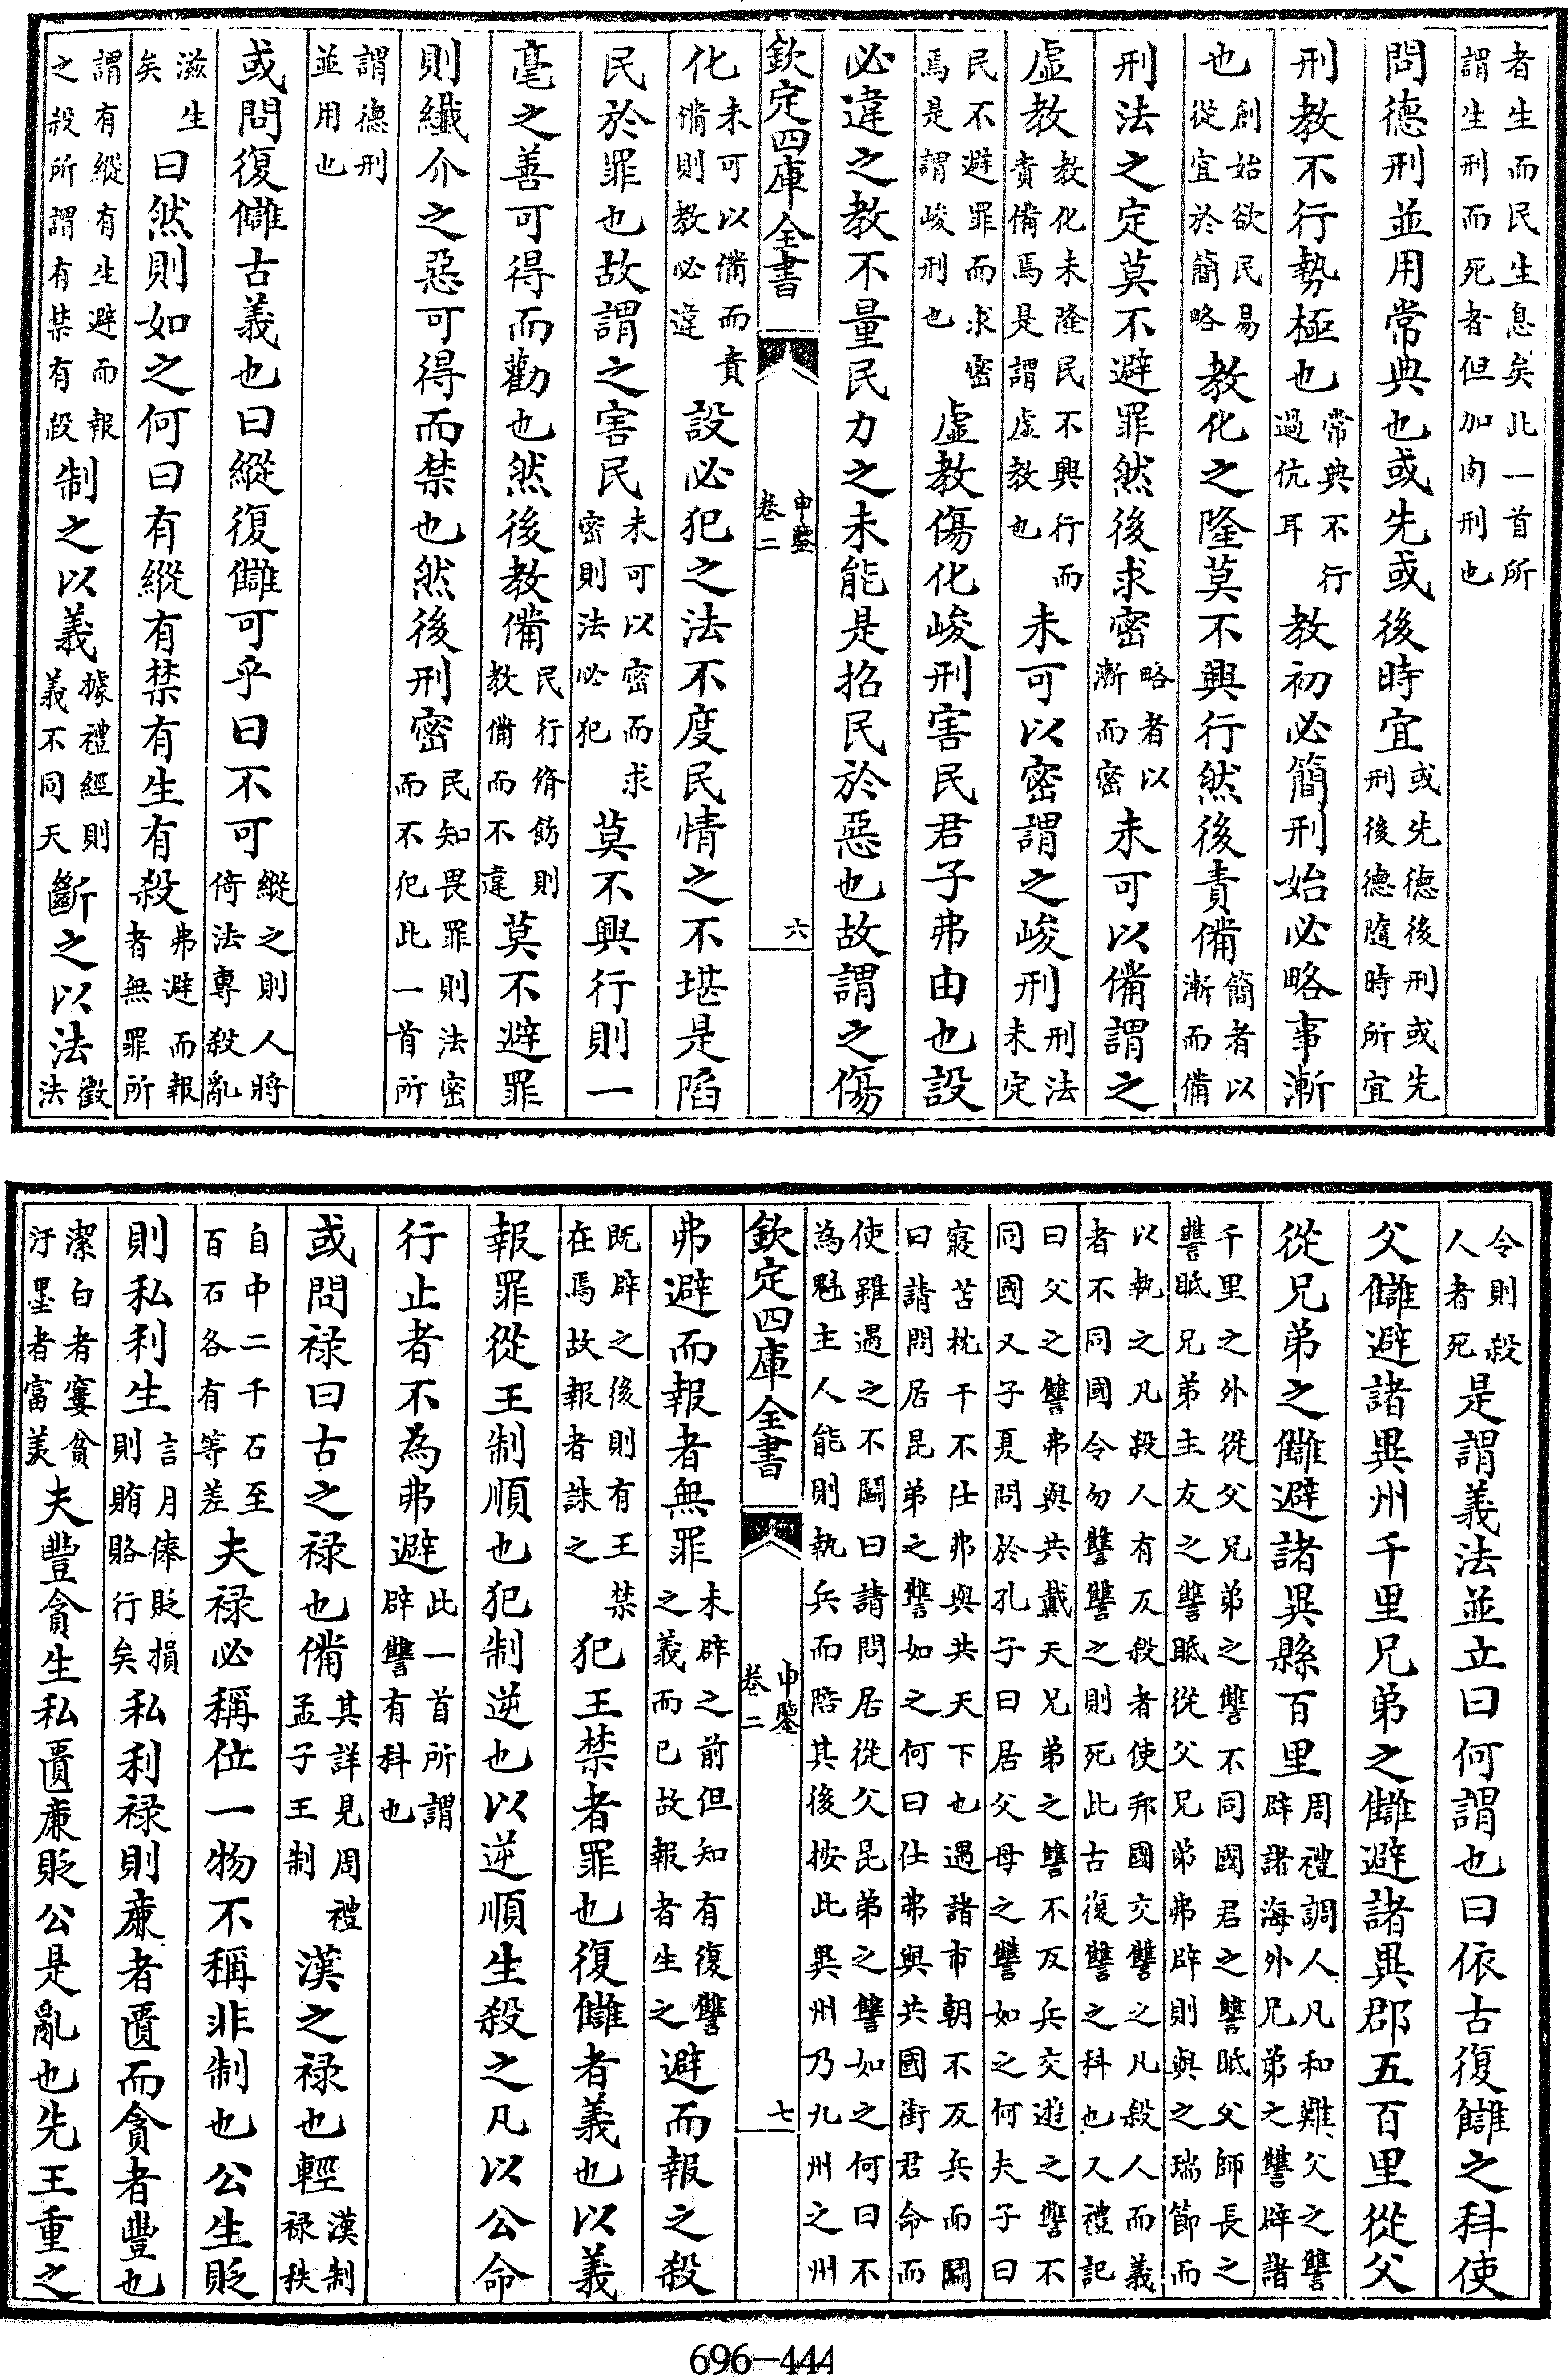 者生而民生息矣此一首所
謂生刑而死者但加肉刑也
問德刑並用常典也或先或後時宜或先德後刑或先刑後德隨時所宜
刑教不行勢極也常典不行過伉耳教初必簡刑始必略事漸
也創始欲民易從宜於簡略教化之隆莫不興行然後責備簡者以漸而備
刑法之定莫不避罪然後求密略者以漸而密未可以備謂之
虛教教化未隆民不興行而責備焉是謂虛教也未可以密謂之峻刑刑法未定
民不避罪而求密焉是謂峻刑也虛教傷化峻刑害民君子弗由也設
必違之教不量民力之未能是招民於惡也故謂之傷
欽定四庫全書 申鑒卷二 六
化未可以備而責備則教必違設必犯之法不度民情之不堪是陷
民於罪也故謂之害民未可以密而求密則法必犯莫不興行則一
毫之善可得而勸也然後教備民行脩飭則教備而不違莫不避罪
則纖介之惡可得而禁也然後刑密民知畏罪則法密而不犯此一首所
謂德刑並用也
或問復讎古義也曰縱復讎可乎曰不可縱之則人將倚法專殺亂
滋生矣曰然則如之何曰有縱有禁有生有殺弗避而報者無罪所
謂有縱有生避而報之殺所謂有禁有殺制之以義據禮經則義不同天斷之以法徵法
令則殺人者死是謂義法並立曰何謂也曰依古復讎之科使
父讎避諸異州千里兄弟之讎避諸異郡五百里從父
從兄弟之讎避諸異縣百里周禮調人凡和難父之讐辟諸海外兄弟之讐辟諸
千里之外從父兄弟之讐不同國君之讐眡父師長之讐眡兄弟主友之讐眡從父兄弟弗辟則與之瑞節而
以執之凡殺人有反殺者使邦國交讐之凡殺人而義者不同國令勿讐讐之則死此古復讐之科也又禮記
曰父之讐弗與共戴天兄弟之讐不反兵交遊之讐不同國又子夏問於孔子曰居父母之讐如之何夫子曰
寢苫枕干不仕弗與共天下也遇諸市朝不反兵而鬭曰請問居昆弟之讐如之何曰仕弗與共國銜君命而
使雖遇之不鬭曰請問居從父昆弟之讐如之何曰不為魁主人能則執兵而陪其後按此異州乃九州之州
欽定四庫全書 申鑒卷二 七
弗避而報者無罪未辟之前但知有復讐之義而已故報者生之避而報之殺
既辟之後則有王禁在焉故報者誅之犯王禁者罪也復讎者義也以義
報罪從王制順也犯制逆也以逆順生殺之凡以公命
行止者不為弗避此一首所謂辟讐有科也
或問祿曰古之祿也備其詳見周禮孟子王制漢之祿也輕漢制祿秩
自中二千石至百石各有等差夫祿必稱位一物不稱非制也公生貶
則私利生言月俸貶損則賄賂行矣私利祿則廉者匱而貪者豐也
潔白者寠貧汙墨者富羙夫豐貪生私匱廉貶公是亂也先王重之
696-444